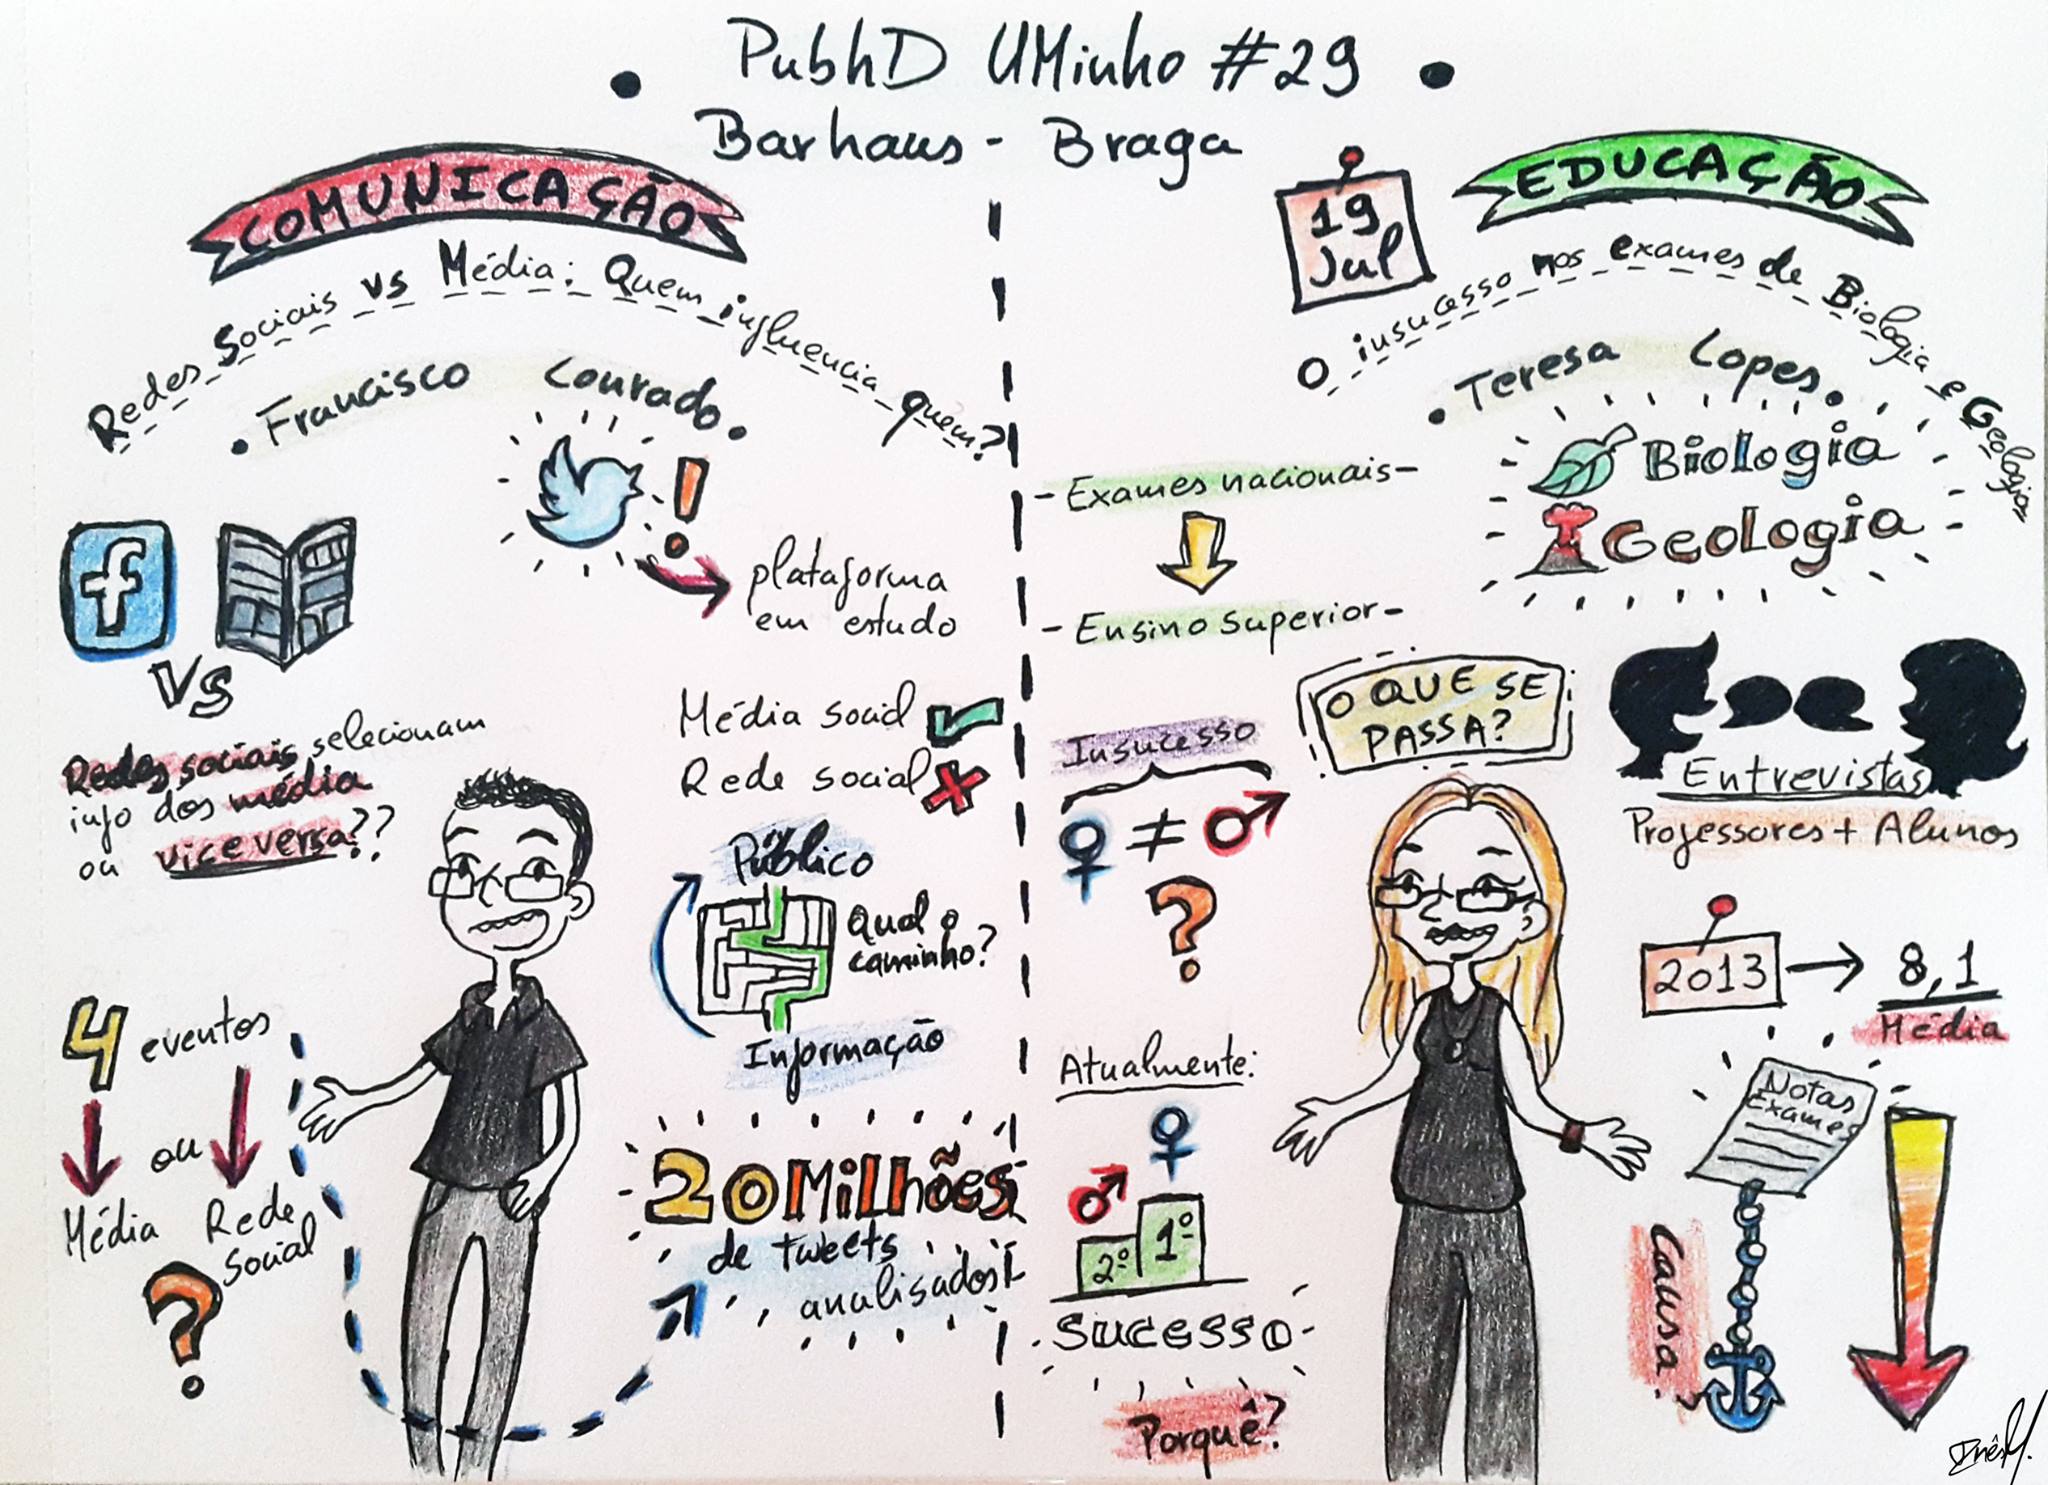 PubhD UMinho #29
Barhaus - Braga
COMUNICAÇÃO
Redes Sociais vs Média: Quem influencia quem?
Francisco Lourado
!
plataforma
em estudo
f
vs
Redes sociais selecionam
info dos média
ou vice versa??
Média social
Rede social
Público
Qual o
caminho?
Informação
4 eventos
ou
Média
Rede
Social
?
20 Milhões
de tweets
analisados!
19
Jul
EDUCAÇÃO
O insucesso nos exames de Biologia e Geologia
Teresa Lopes
Biologia
Geologia
- Exames nacionais -
- Ensino Superior -
O QUE SE
PASSA?
Insucesso
♀ ≠ ♂
?
Entrevistas
Professores + Alunos
2013 → 8,1
Média
Atualmente:
♀
♂
2º 1º
SUCESSO
Porquê?
Notas
Exames
Causa
InêsM.